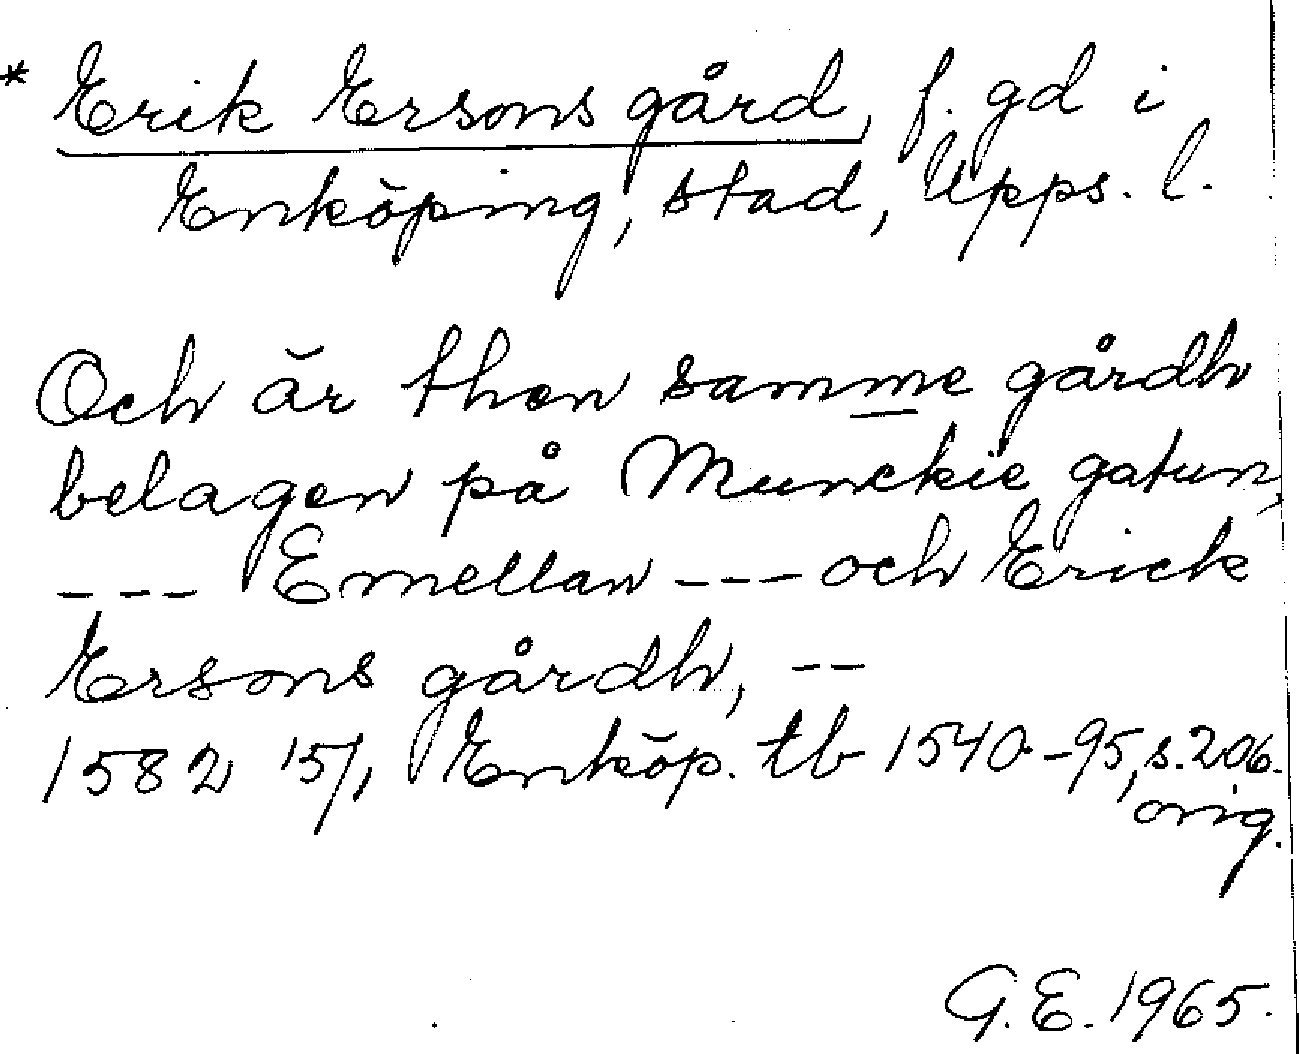 * Erik Ersons gård, f. gd i
Enköping, stad, Upps. l.
Och är then samme gårdh
belagen på Munckie gatun,
--- Emellan --- och Erick
Ersons gårdh, --
1582 15/1 Enköp. tb 1540-95, s. 206.
orig.
G.E. 1965.